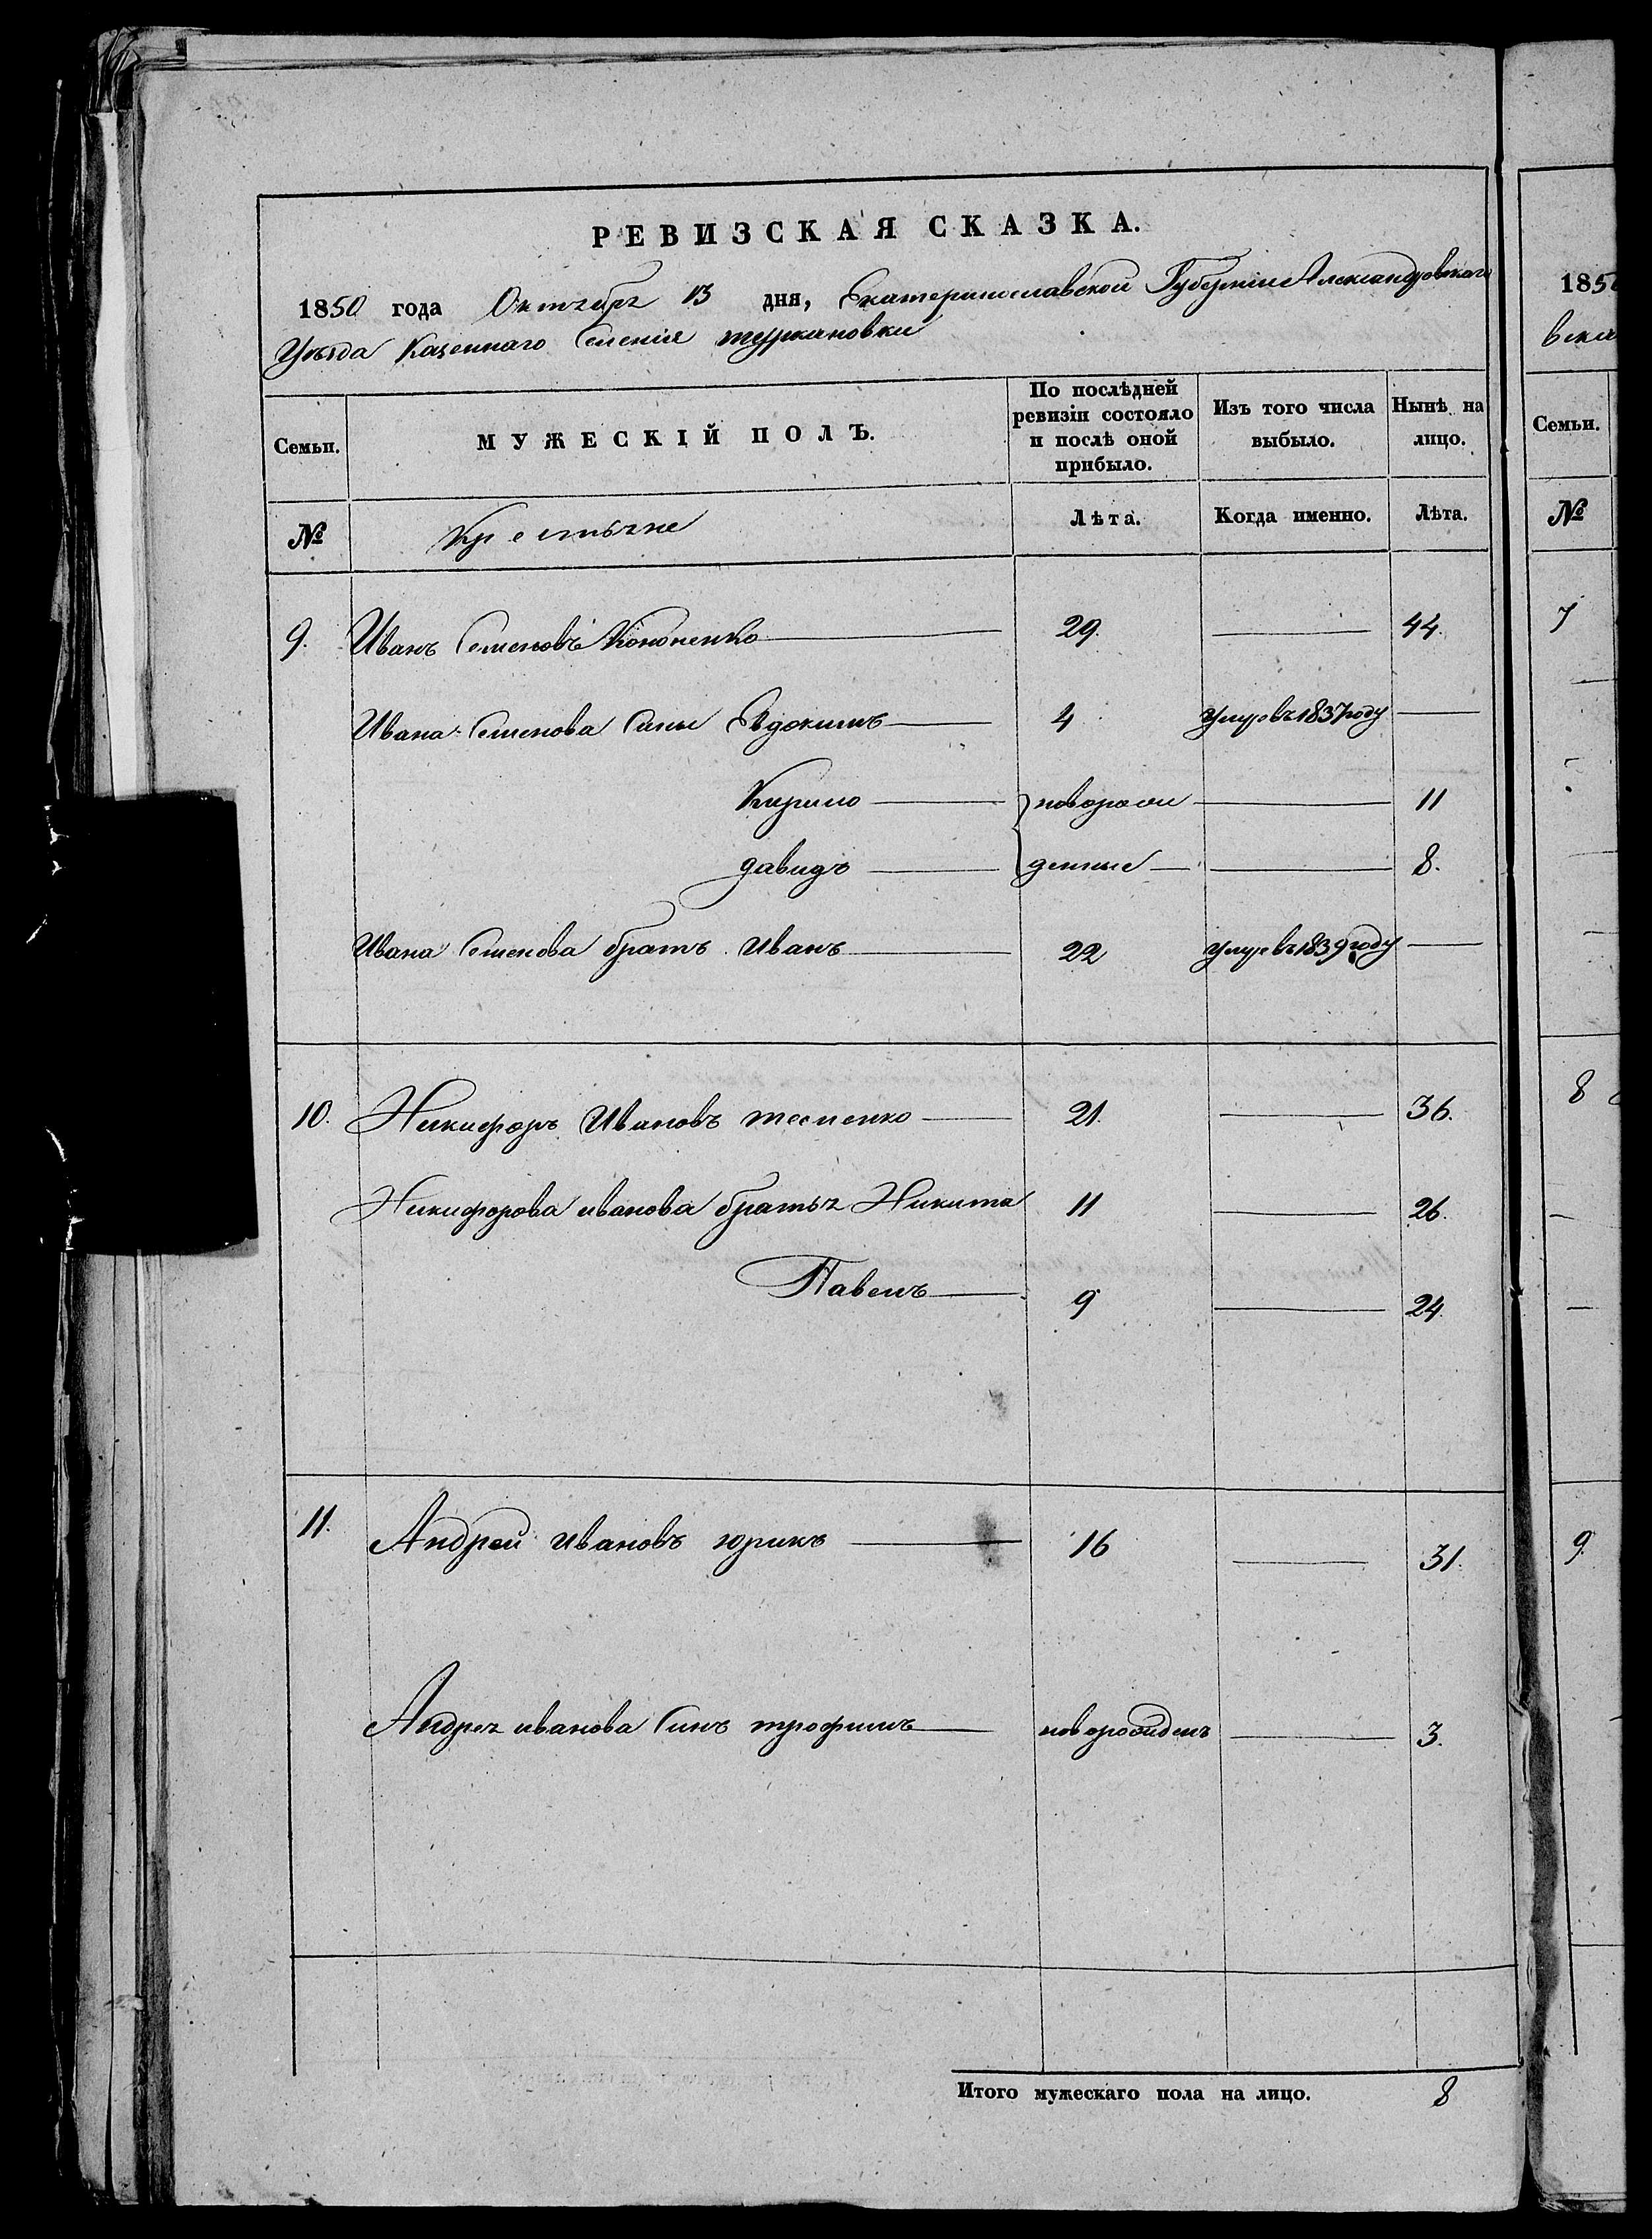 РЕВИЗСКАЯ СКАЗКА.
1850 года Октября 13 дня, Екатеринославской Губернии Александровскаго
Уезда Казеннаго Селения
Семьи. МУЖЕСКІЙ ПОЛЪ. По послѣдней ревизіи состояло и послѣ оной прибыло. Изъ того числа выбыло. Нынѣ на лицо.
№ Крестьяне Лѣта. Когда именно. Лѣта.
9. Иванъ Семеновъ Кононенко 29. 44.
Ивана Семенова Сины Евдокимъ 4 Умеръ въ 1837 году
Кирило новорож 11
давидъ денные 8.
Ивана Семенова братъ Иванъ 22 умеръ въ 1839 году
10. Никифоръ Ивановъ тесленко 21. 36.
Никифорова иванова братья Никита 11 26.
Павелъ 9 24.
11. Андрей ивановъ юрикъ 16 31.
Андрея иванова Синъ трофимъ новорожденъ 3.
Итого мужескаго пола на лицо. 8
185
вска
Семьи.
№
7
8
9.